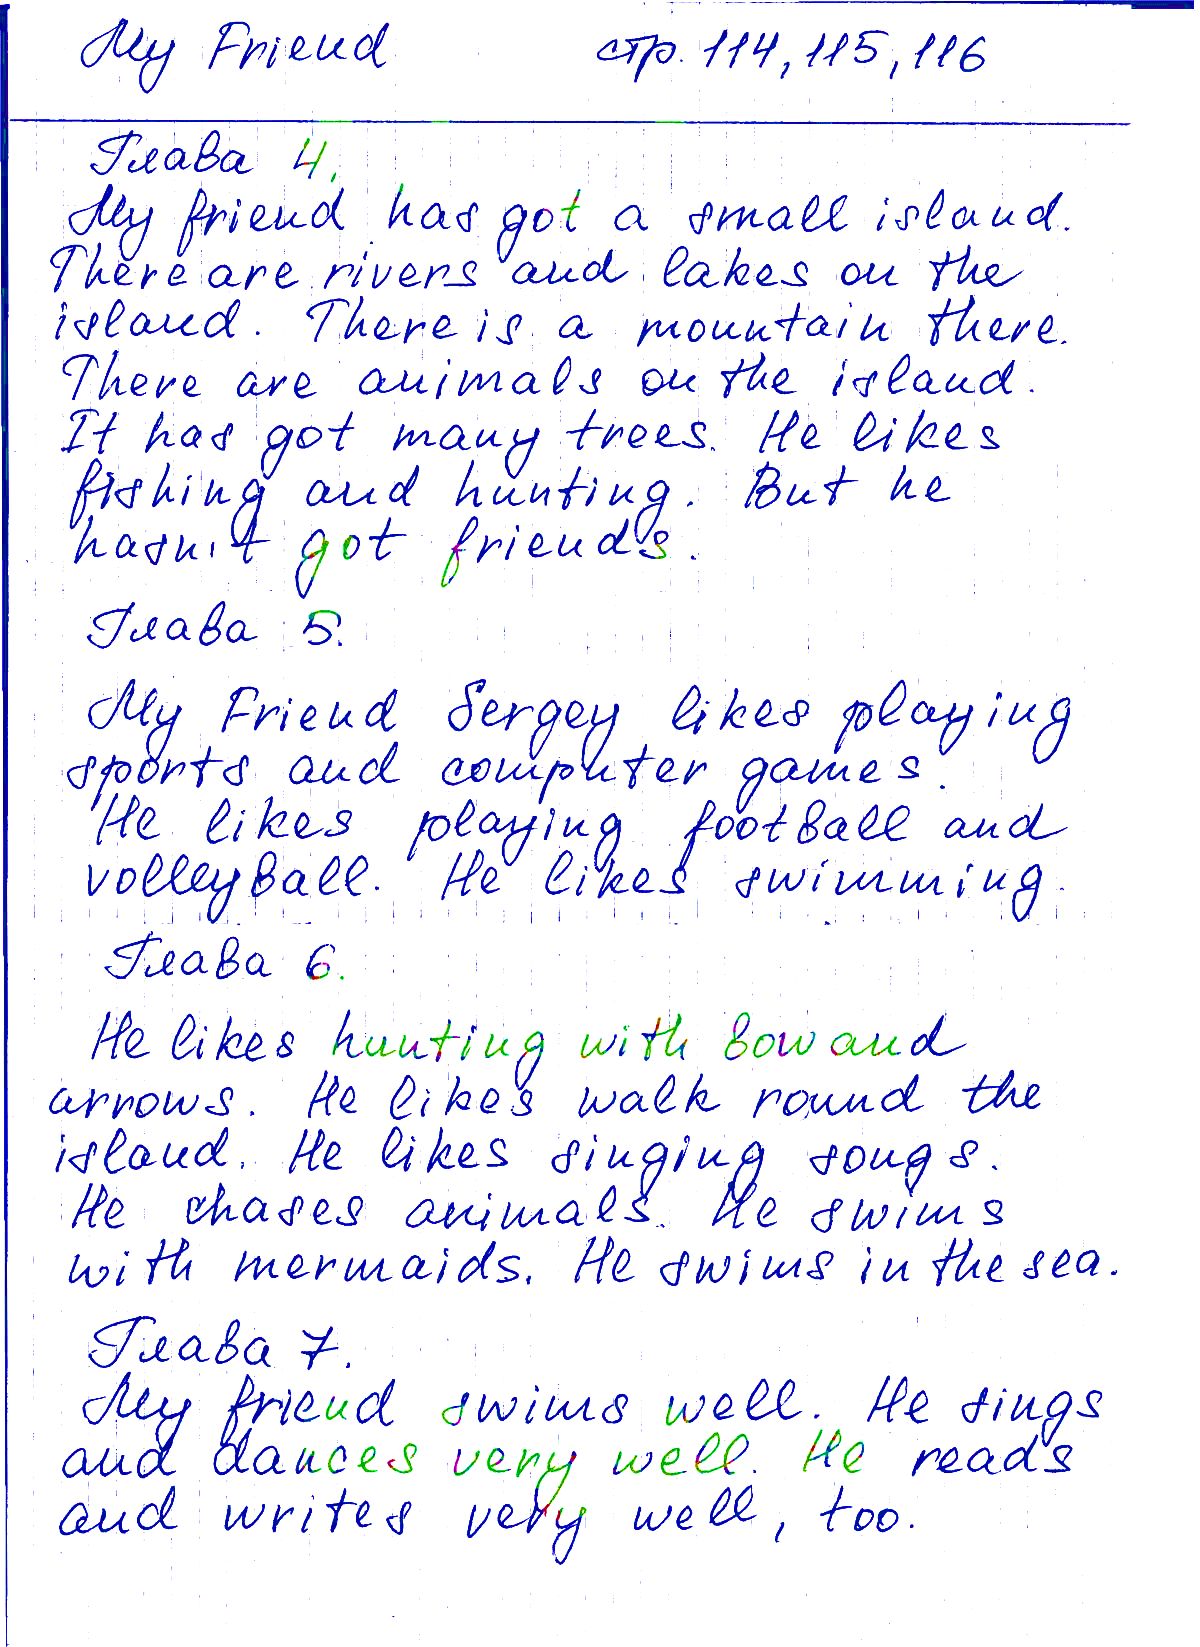 My Friend стр. 114, 115, 116
Глава 4.
My friend has got a small island.
There are rivers and lakes on the
island. There is a mountain there.
There are animals on the island.
It has got many trees. He likes
fishing and hunting. But he
hasn't got friends.
Глава 5.
My Friend Sergey likes playing
sports and computer games.
He likes playing football and
volleyball. He likes swimming.
Глава 6.
He likes hunting with bow and
arrows. He likes walk round the
island. He likes singing songs.
He chases animals. He swims
with mermaids. He swims in the sea.
Глава 7.
My friend swims well. He sings
and dances very well. He reads
and writes very well, too.